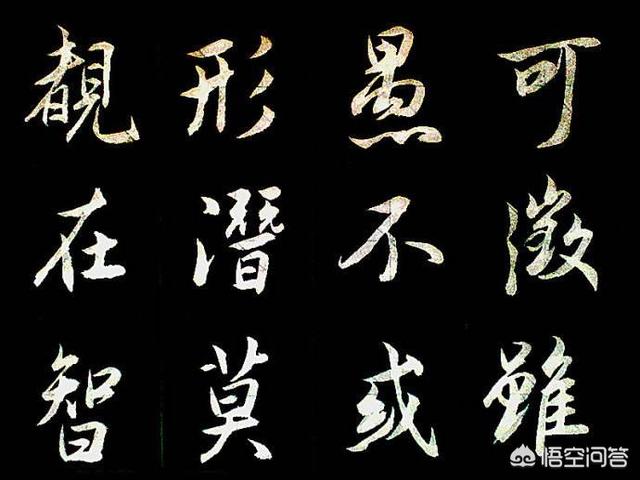 可徵雖
愚不或
形潛莫
覩在智
悟空问答